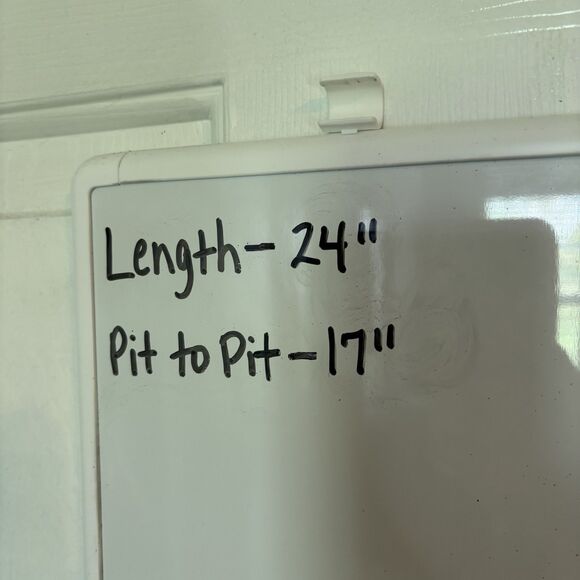 Length- 24"
Pit to Pit-17"